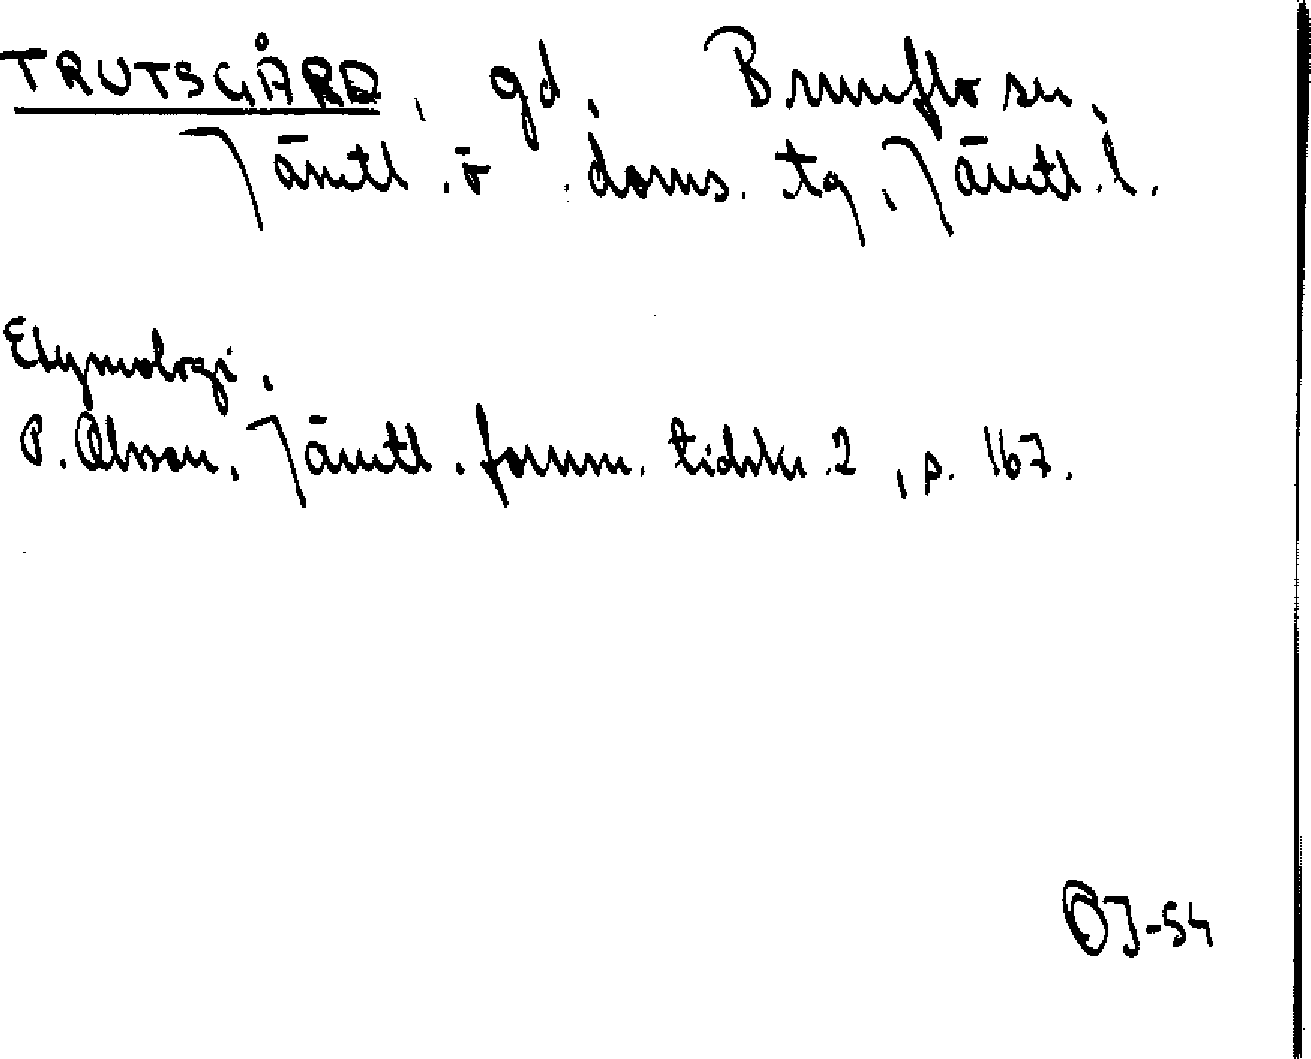 TRUTSGÅRD, gd, Brunflo sn,
Jämtl. ö. doms. tg, Jämtl. l.
Etymologi.
P. Olsson, Jämtl. fornm. tidskr. 2, s. 167.
OJ-54